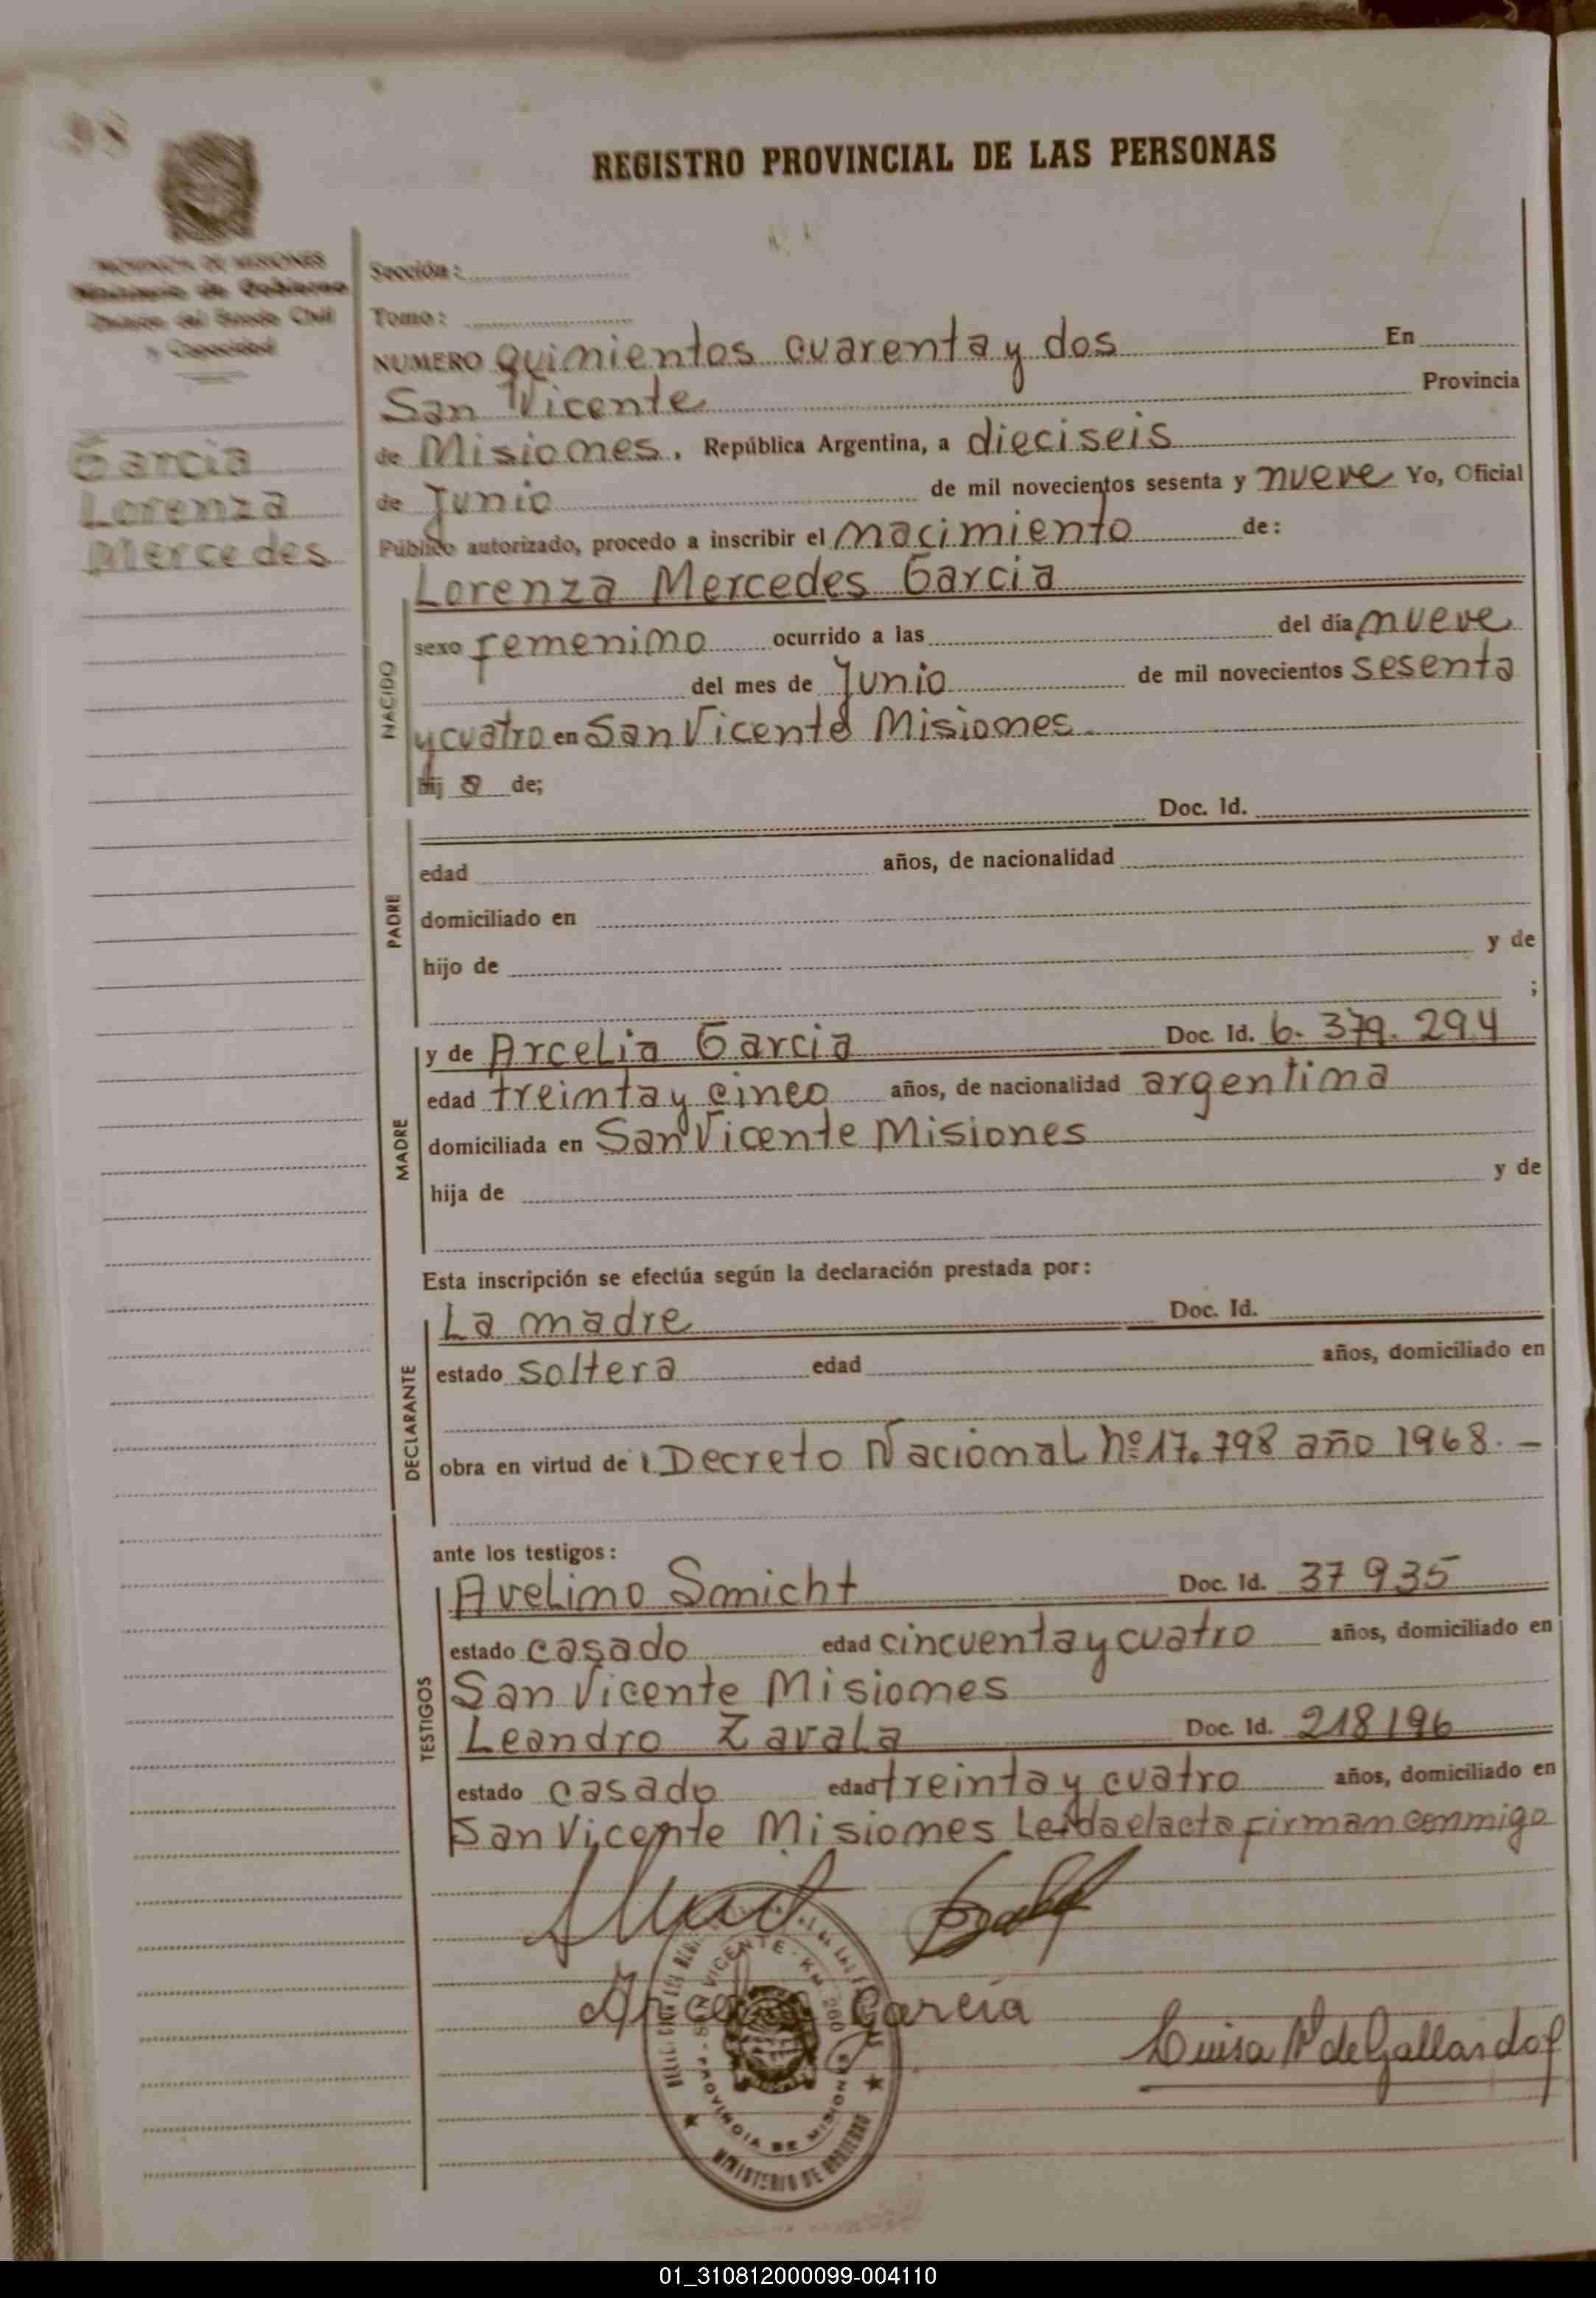 REGISTRO PROVINCIAL DE LAS PERSONAS
PROVINCIA DE MISIONES
Ministerio de Gobierno
Estado Civil
y Capacidad
Garcia
Lorenza
Mercedes
Sección:
Tomo:
NUMERO quinientos cuarenta y dos En
San Vicente Provincia
de Misiones, República Argentina, a dieciseis
de Junio de mil novecientos sesenta y nueve Yo, Oficial
Público autorizado, procedo a inscribir el nacimiento de:
NACIDO
Lorenza Mercedes Garcia
sexo femenino ocurrido a las del día nueve
del mes de Junio de mil novecientos sesenta
y cuatro en San Vicente Misiones.
hij a de;
PADRE
Doc. Id.
edad años, de nacionalidad
domiciliado en
hijo de y de
;
MADRE
y de Arcelia Garcia Doc. Id. 6.379.294
edad treinta y cinco años, de nacionalidad argentina
domiciliada en San Vicente Misiones
hija de y de
Esta inscripción se efectúa según la declaración prestada por:
DECLARANTE
La madre Doc. Id.
estado soltera edad años, domiciliado en
obra en virtud de Decreto Nacional nº 17.798 año 1968. —
ante los testigos:
TESTIGOS
Avelino Smicht Doc. Id. 37935
estado casado edad cincuenta y cuatro años, domiciliado en
San Vicente Misiones
Leandro Zavala Doc. Id. 218196
estado casado edad treinta y cuatro años, domiciliado en
San Vicente Misiones Leida el acta firman conmigo
Arcelia Garcia
Luisa de Gallardo
SAN VICENTE - KM. 260
PROVINCIA DE MISIONES
MINISTERIO DE GOBIERNO
01_310812000099-004110